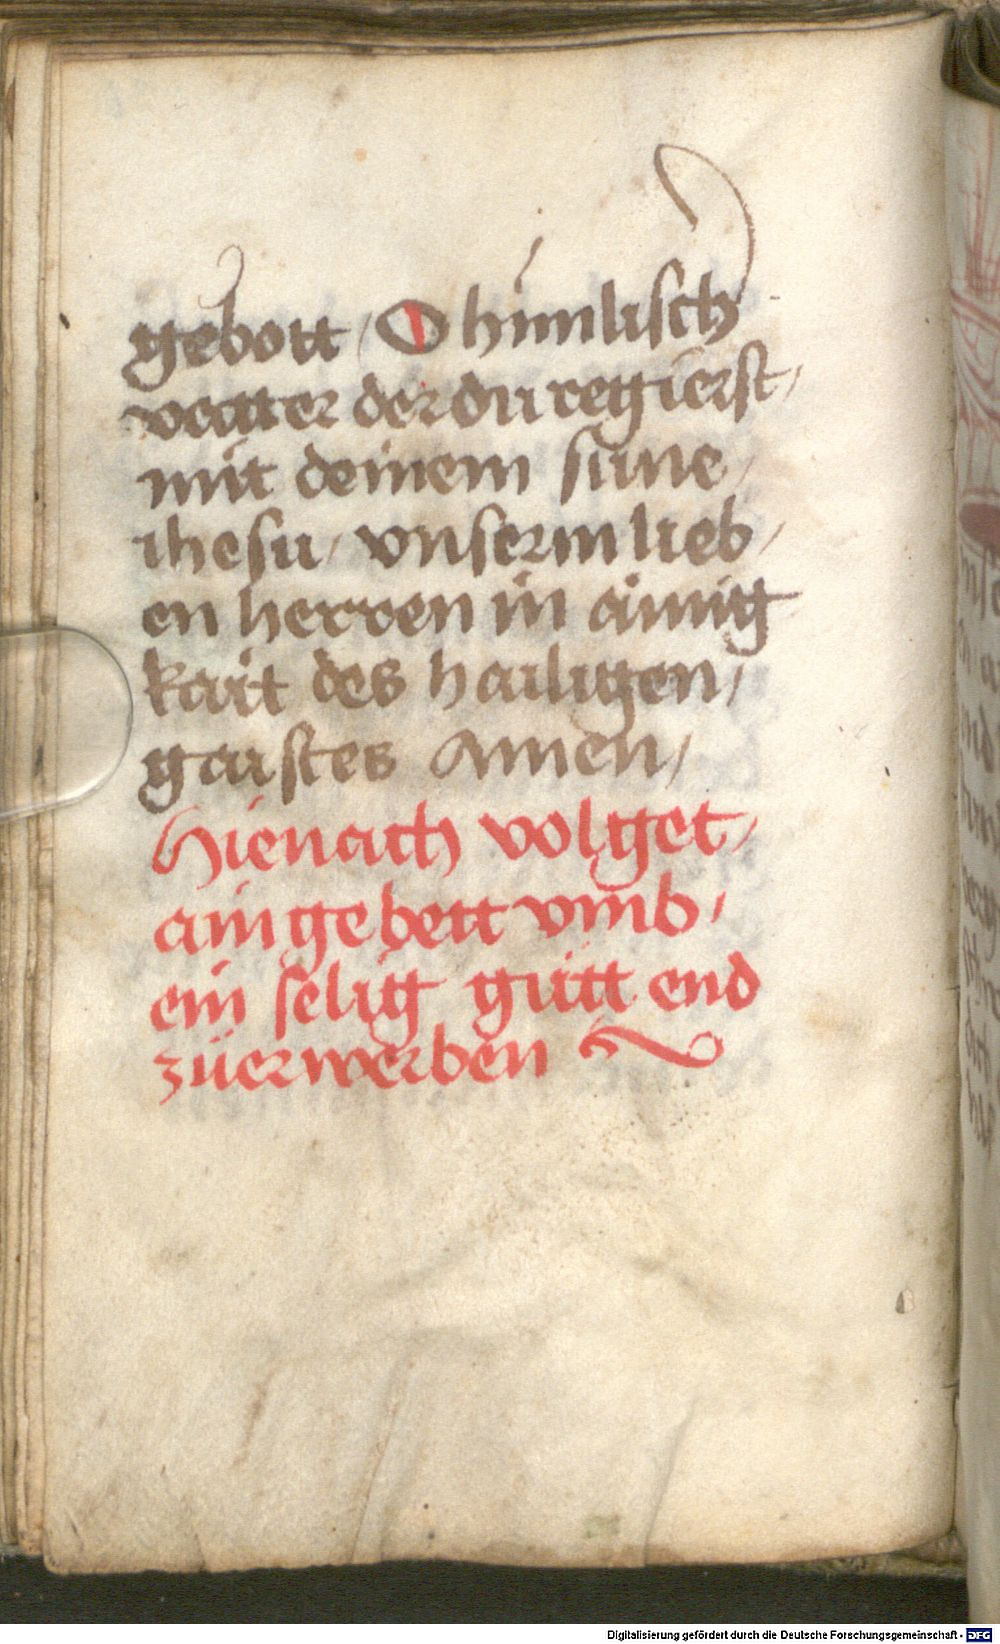 gebott / O himlisch
vatter der du regierst /
mit deinem sune /
ihesu / vnserm lieb /
en herren in ainig
kait des hailigen /
gaistes Amen /
Hienach volget /
ain gebett vmb /
ein selig gutt end
zuerwerben
Digitalisierung gefördert durch die Deutsche Forschungsgemeinschaft - DFG